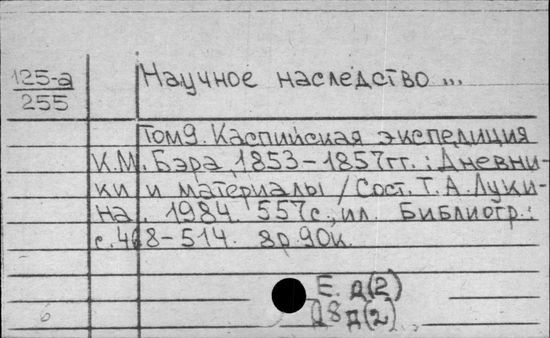 125-а
255
Научное наследство ...
Том 9. Каспийская экспедиция
К.М. Бэра, 1853-1857гг.: Дневни-
ки и материалы / Сост. Т. А. Луки-
на. 1984. 557с., ил. Библиогр.:
с. 468-514. 8р.90к.
Е. д(2)
д(2)
6